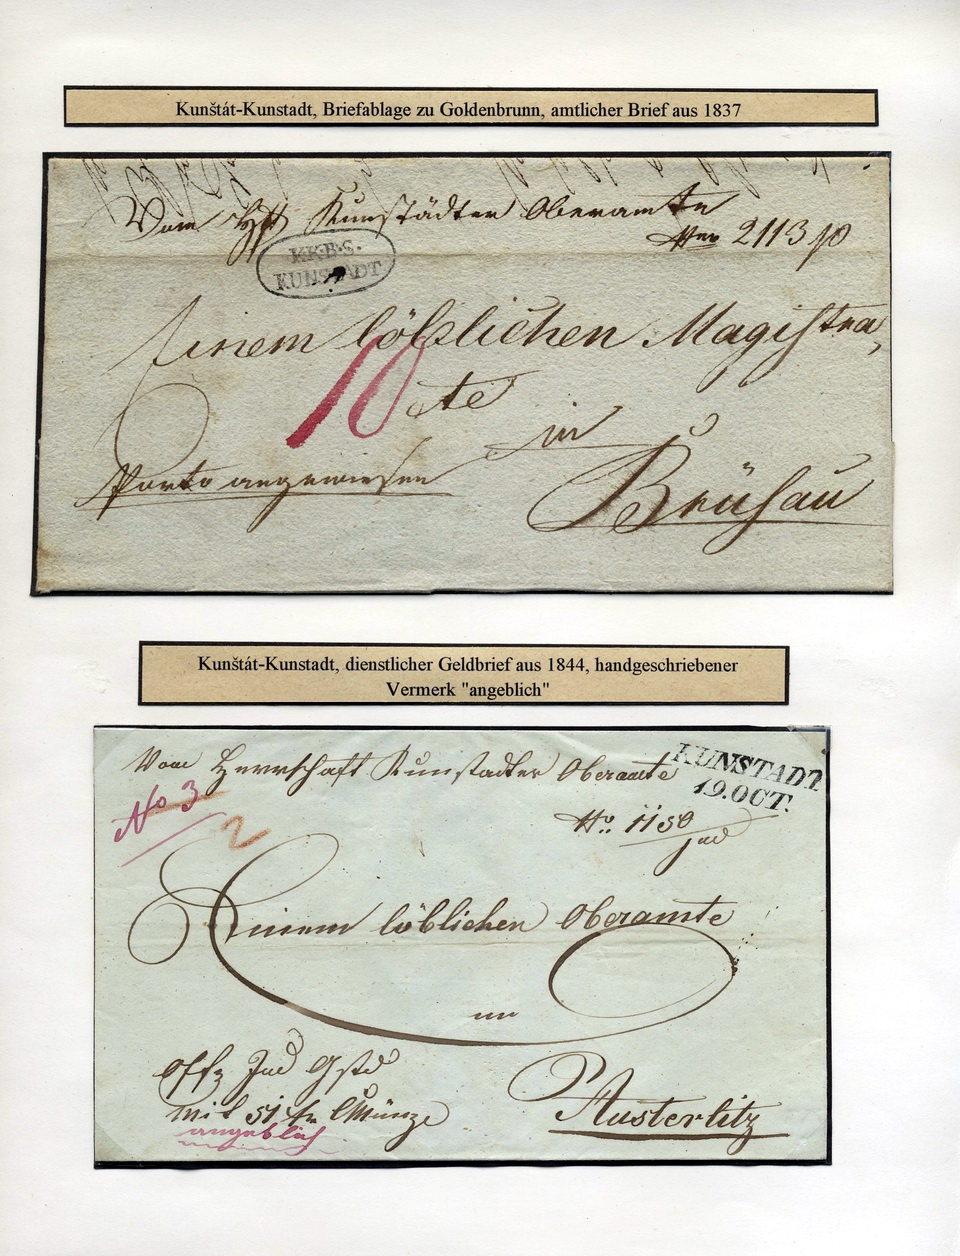 Kunštát-Kunstadt, Briefablage zu Goldenbrunn, amtlicher Brief aus 1837
Vom Hft Kunstädter Oberamte
Nro 2113
K.K.B.S.
KUNSTADT
Einem löblichen Magistra,
10
te
in
Porto angewiesen
Brüsau
Kunštát-Kunstadt, dienstlicher Geldbrief aus 1844, handgeschriebener
Vermerk "angeblich"
Vom Herrschaft Kunstadter Oberamte
KUNSTADT.
19.OCT.
No 3
2
No. 1150
jud
Einem löblichen Oberamte
in
Offz Jud Gstd
mit 51 fr CMünze
angeblich
Austerlitz